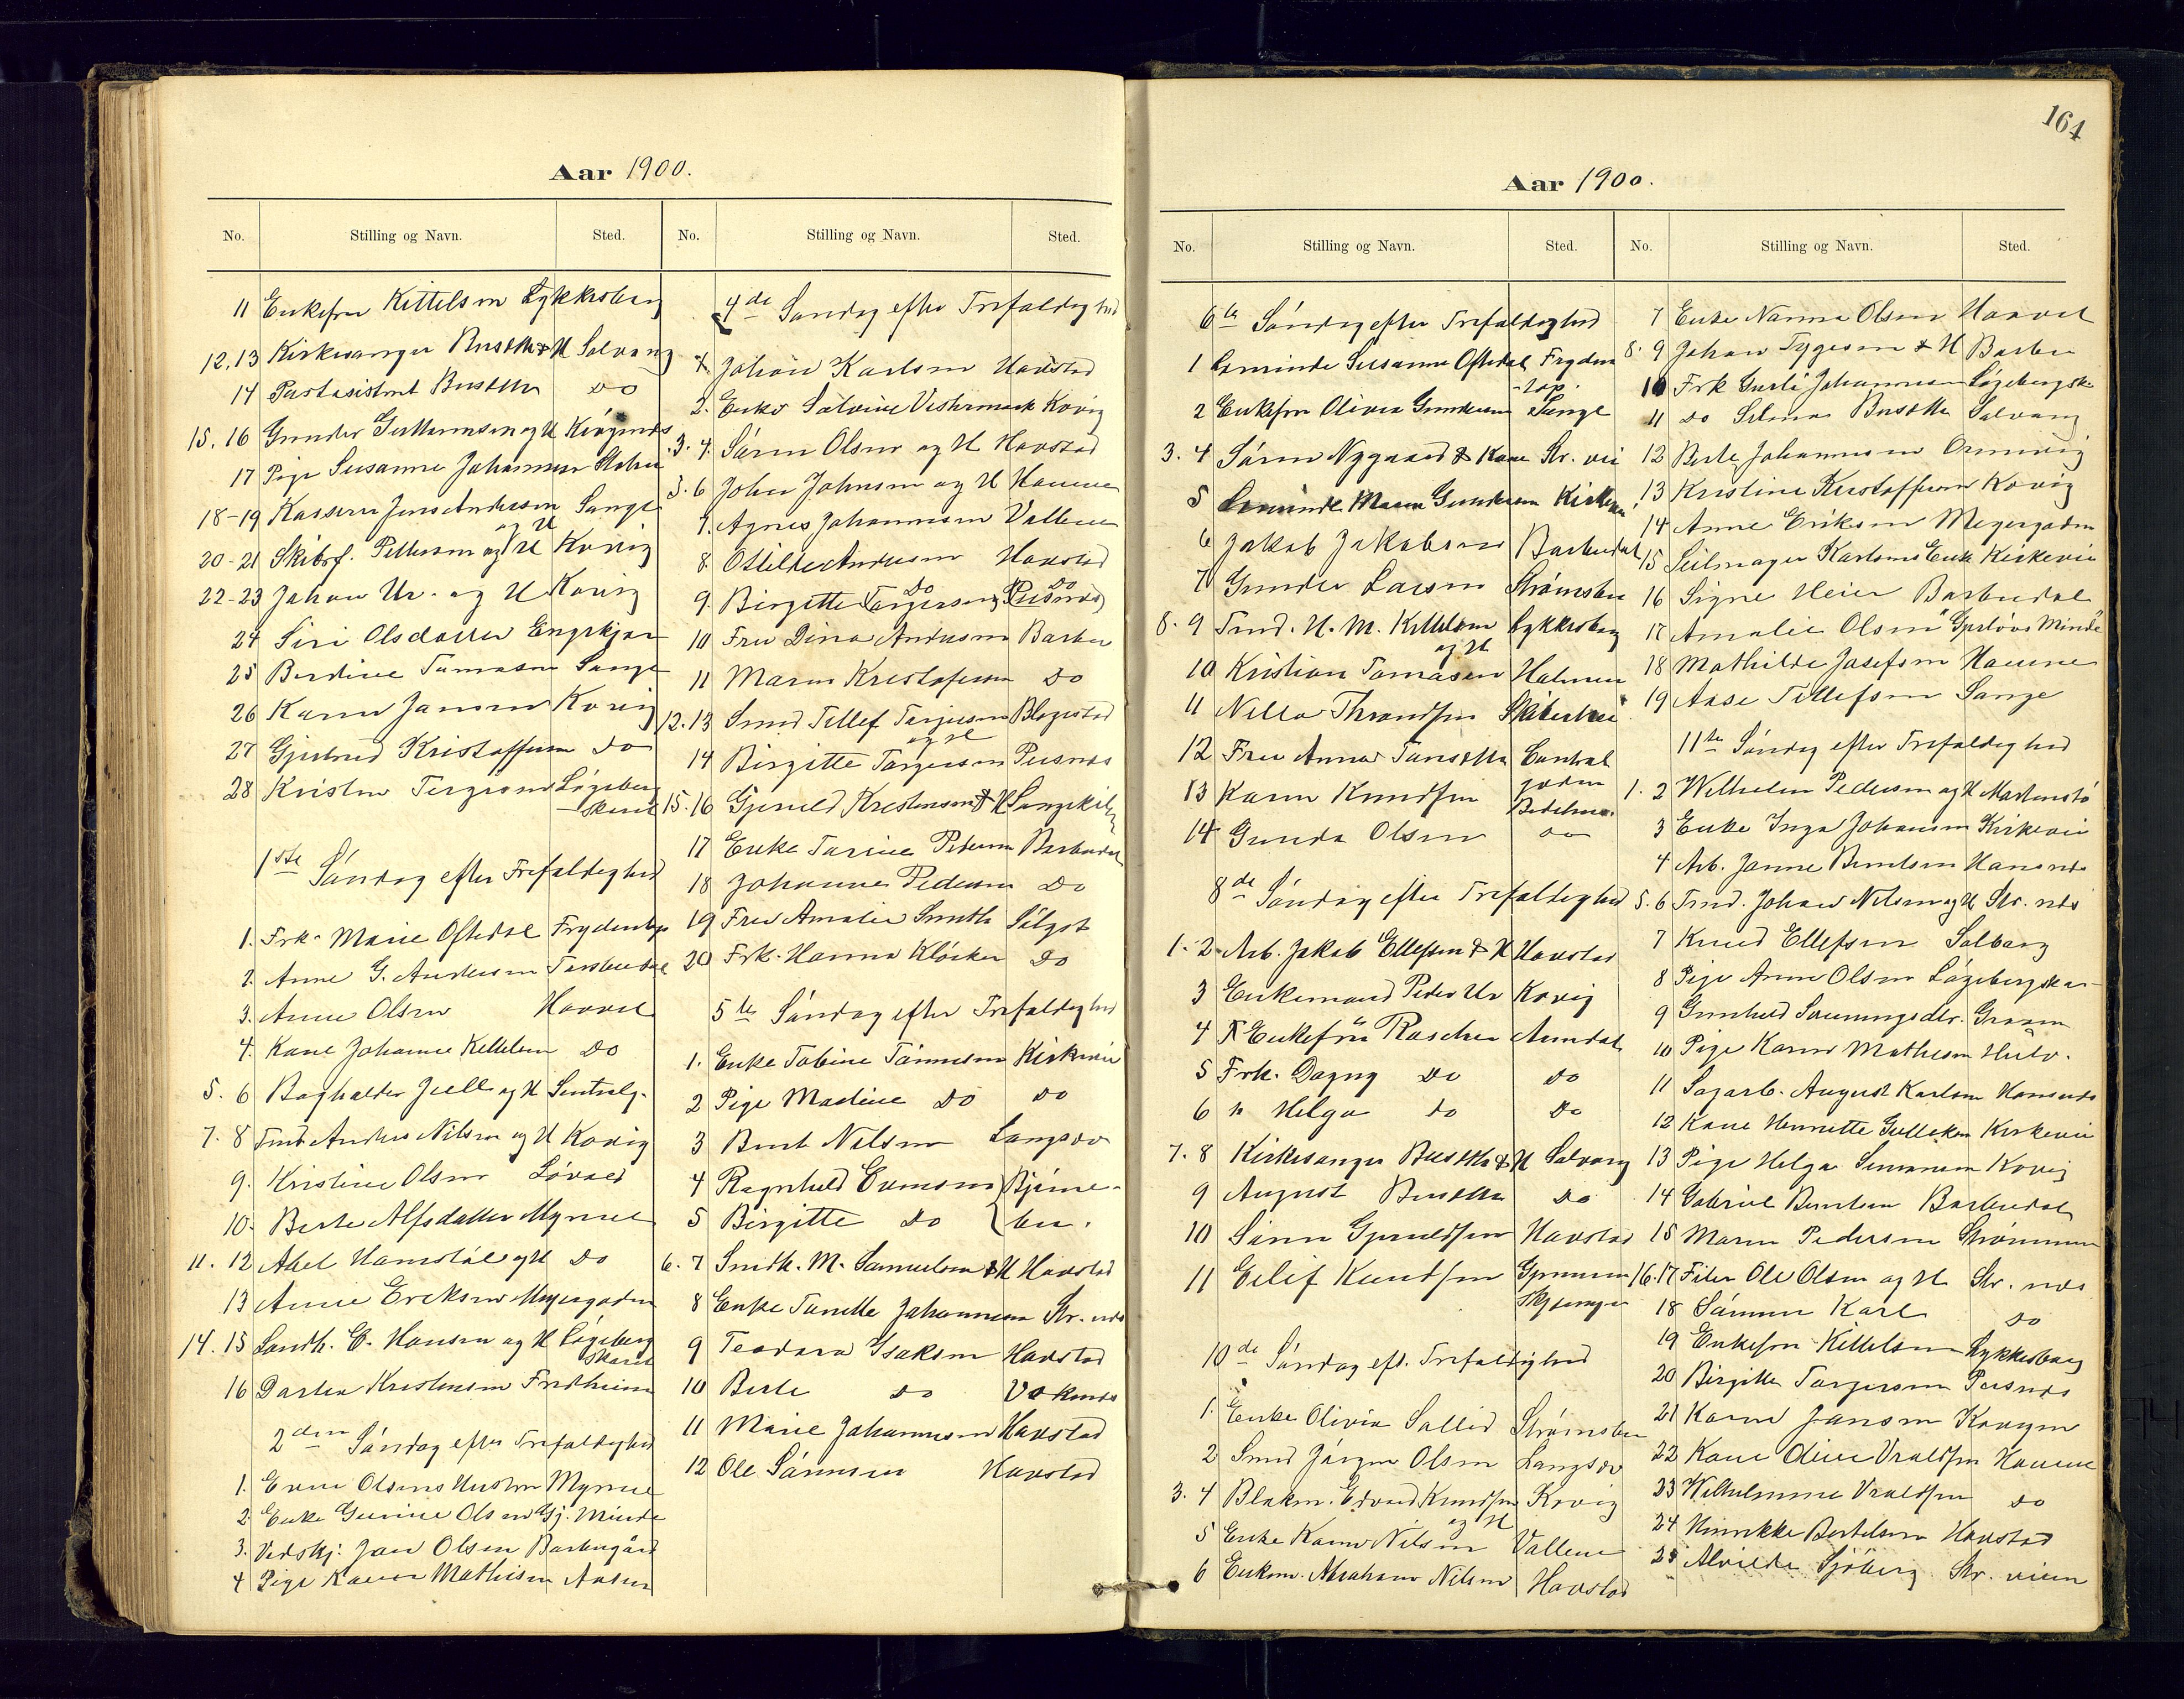 Aar 1900.
No. Stilling og Navn. Sted.
11 Enkefru Kittelsen Lykkesberg
12,13 Kirkesanger Buseth & H Solvang
14 Postasistent Buseth do
15.16 Gunder Guttormsen og H
17 Pige Susanne Johannesen
18-19 Kasserer Jens Andersen og H Songe
20-21 Skibsf. Pettersen og H Kovig
22-23 Johan Ur. og H Kovig
24 Siri Olsdatter Engekjær
25 Berdine Tomasen Songe
26 Karen Jansen Kovig
27 Gjertrud Kristoffersen do
28 Kristen Tergesen Løgeberg
skaret
1ste Søndag efter Trefoldighed
1. Frk. Marie Oftedal Frydenbg
2. Anne G. Andersen
3. Anne Olsen Havvel
4. Kane Johanne Kittelsen do
5. 6 Bogholder Juell og H Sentralg.
7. 8 Tmd Anders Nilsen og H Kovig
9. Kristine Olsen Løvold
10. Berte Alfsdatter Myrene
11. 12 Abel Hamstøl og H do
13 Anne Eriksen Meyergaden
14. 15 Landh. E. Hansen og H Løgeberg
skaret
16 Dorthea Kristensen Fredheim
2den Søndag efter Trefoldighed
1. Even Olsens Hustru Myrene
2. Enke Gurine Olsen Gj. Minde
3. Vedskj. Jan Olsen Barbugård
4 Pige Karen Mathisen Aasen
No. Stilling og Navn. Sted.
4de Søndag efter Trefoldighed
1. Johan Karlsen Havstad
2. Enke Salvine Vestermark Kovig
3. 4. Søren Olsen og H Havstad
5. 6 John Johnsen og H Havene
7. Agnes Johannesen Vallene
8. Otilde Andersen Havstad
9. Birgitte Torgersen Pusnes
10 Fru Dina Andersen Barbu
11 Maren Kristofersen do
12. 13 Smed Tellef Terjesen og H Blogestad
14 Birgitte Torgersen Pusnes
15. 16 Gjeruld Kristensen & H Langekil
17 Enke Tarine Pedersen Barbudal
18 Johanne Pedersen do
19 Fru Amalie Smith
20 Frk. Hanna Kløcker do
5te Søndag efter Trefoldighed
1. Enke Tobine Tønnesen Kirkevei
2 Pige Madine do do
3 Bernt Nilsen Langsev
4 Ragnhild Evensen Bjørne-
5 Birgitte do bu.
6. 7 Smedk. M. Samuelsen & H Havstad
8 Enke Tanette Johannesen Str. nes
9 Teodora Isaksen Havstad
10 Berte do
11 Marie Johannesen Havstad
12 Ole Sørensen Havstad
164
Aar 1900.
No. Stilling og Navn. Sted.
6te Søndag efter Trefoldighed
1 Lærerinde Susanne Oftedal Fryden
-top.
2 Enkefru Olivia Gundersen Songe
3. 4 Søren Nygaard & Kone Str. vei
5 Lærerinde Maren Gundersen Kirkevei
6 Jakob Jakobsen Barbudal
7 Gunder Larsen Strømsbu
8. 9 Tmd. H. M. Kittelsen og H Lykkesberg
10 Kristian Tomasen Holmen
11 Nella Thrandsen
12 Fru Anna Danseth Central
gaden
13 Karen Knudsen Bedehuset
14 Gunda Olsen do
8de Søndag efter Trefoldighed
1. 2 Arb. Jakob Ellefsen & H Havstad
3 Enkemand Peder Ur Kovig
4 Enkefru Roscher Arendal
5 Frk. Dagny do do
6 " Helga do do
7. 8 Kirkesanger Buseth & H Solvang
9 August Buseth do
10 Sina Gjeruldsen Havstad
11 Eilif Knudsen
10de Søndag eft. Trefoldighed
1. Enke Olivia Salled Strømsbu
2. Smed Jørgen Olsen Langsev
3. 4 Blokm. Edvard Knudsen og H Kovig
5 Enke Karen Nilsen Vallene
6 Enkem. Abraham Nilsen Havstad
No. Stilling og Navn. Sted.
7 Enke Nanna Olsen Havvel
8. 9 Johan Tygesen & H Barbu
10 Frk Gusti Johannesen Løgebergsk
11 do Selma Buseth Solvang
12 Berte Johannesen Ormevig
13 Kristine Kristoffersen Kovig
14 Anne Eriksen Meyergaden
15 Seilmager Karlsens Enke Kirkevei
16 Signe Heier Barbudal
17 Amalie Olsen "Gjerløvs Minde"
18 Mathilde Josefsen Havene
19 Aase Tellefsen Songe
11te Søndag efter Trefoldighed
1. 2 Wilhelm Pedersen og H
3 Enke Inga Johansen Kirkevei
4 Arb. Janne Berntsen
5. 6 Tmd. Johan Nilsen og H Str. nes
7 Knud Ellefsen Solberg
8 Pige Anne Olsen Løgebergskar
9 Gunhild Sørensdtr.
10 Pige Karen Mathisen
11 Sagarb. August Karlsen
12 Kane Henriette Gulleksen Kirkevei
13 Pige Helga Simonsen Kovig
14 Gabriel Berntsen Barbudal
15 Maren Pedersen Strømmen
16.17 Filer Ole Olsen og H Str. nes
18 Sønnen Karl do
19 Enkefru Kittelsen Lykkesberg
20 Birgitte Torgersen Pusnes
21 Karen Jansen Kovigen
22 Kane Oline Vraldsen Havene
23 Wilhelmine Vraldsen do
24 Henrikke Bertelsen Havstad
25 Alvilde Sjöberg Str. veien